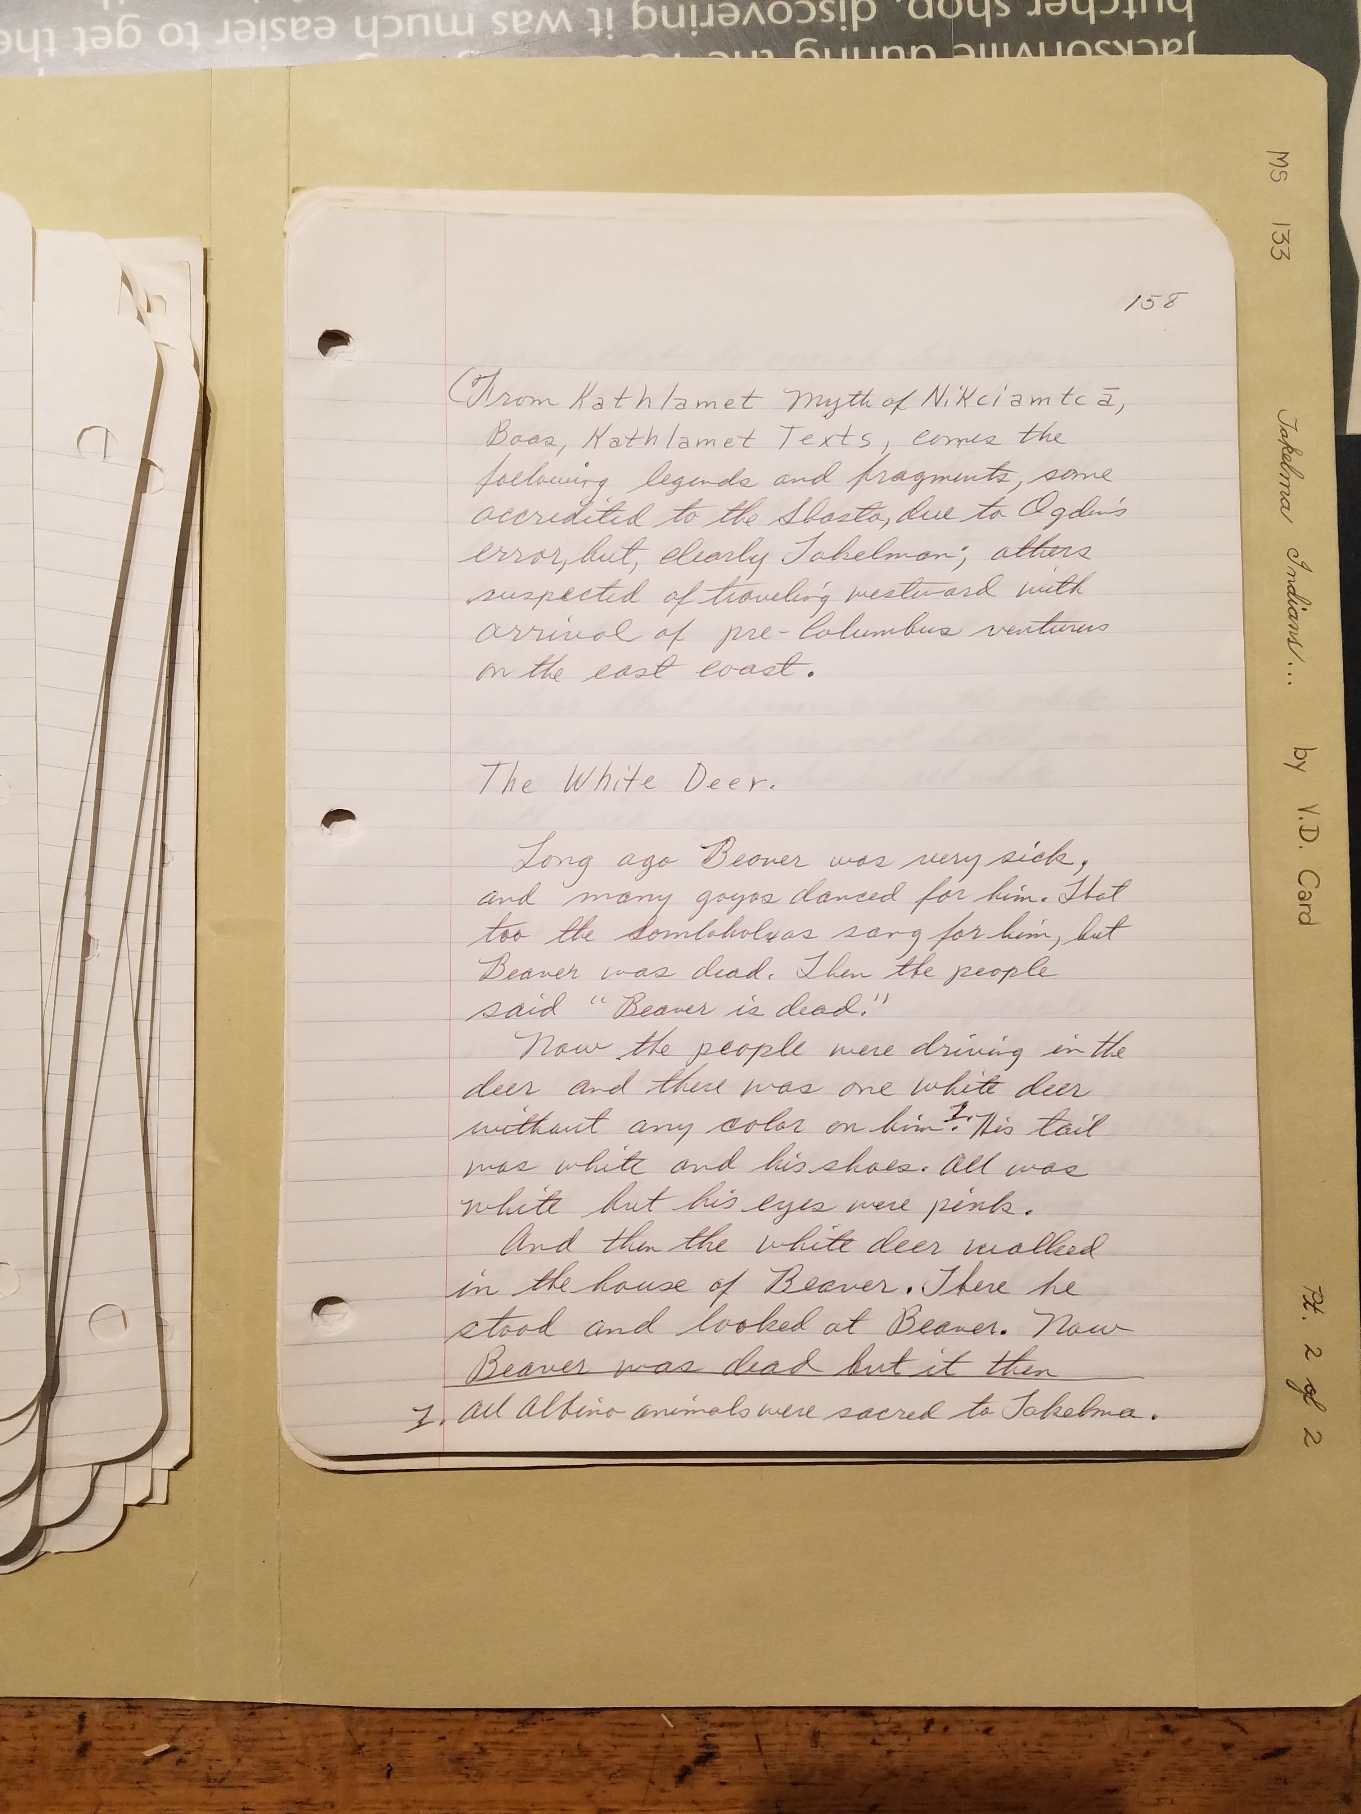 Jacksonville during the
butcher shop, discovering it was much easier to get the
MS 133 Takelma Indians... by V.D. Card Pt. 2 of 2
158
(From Kathlamet Myth of Nikciamtcā,
Boas, Kathlamet Texts, comes the
following legends and fragments, some
accredited to the Shasta, due to Ogden's
error, but, clearly Takelman; others
suspected of traveling westward with
arrival of pre-Columbus ventures
on the east coast.
The White Deer.
Long ago Beaver was very sick,
and many goyos danced for him. That
too the somloholxas sang for him, but
Beaver was dead. Then the people
said "Beaver is dead."
Now the people were driving in the
deer and there was one white deer
without any color on him 1. His tail
was white and his shoes. All was
white but his eyes were pink.
And then the white deer walked
in the house of Beaver. There he
stood and looked at Beaver. Now
Beaver was dead but it then
1. All Albino animals were sacred to Takelma.